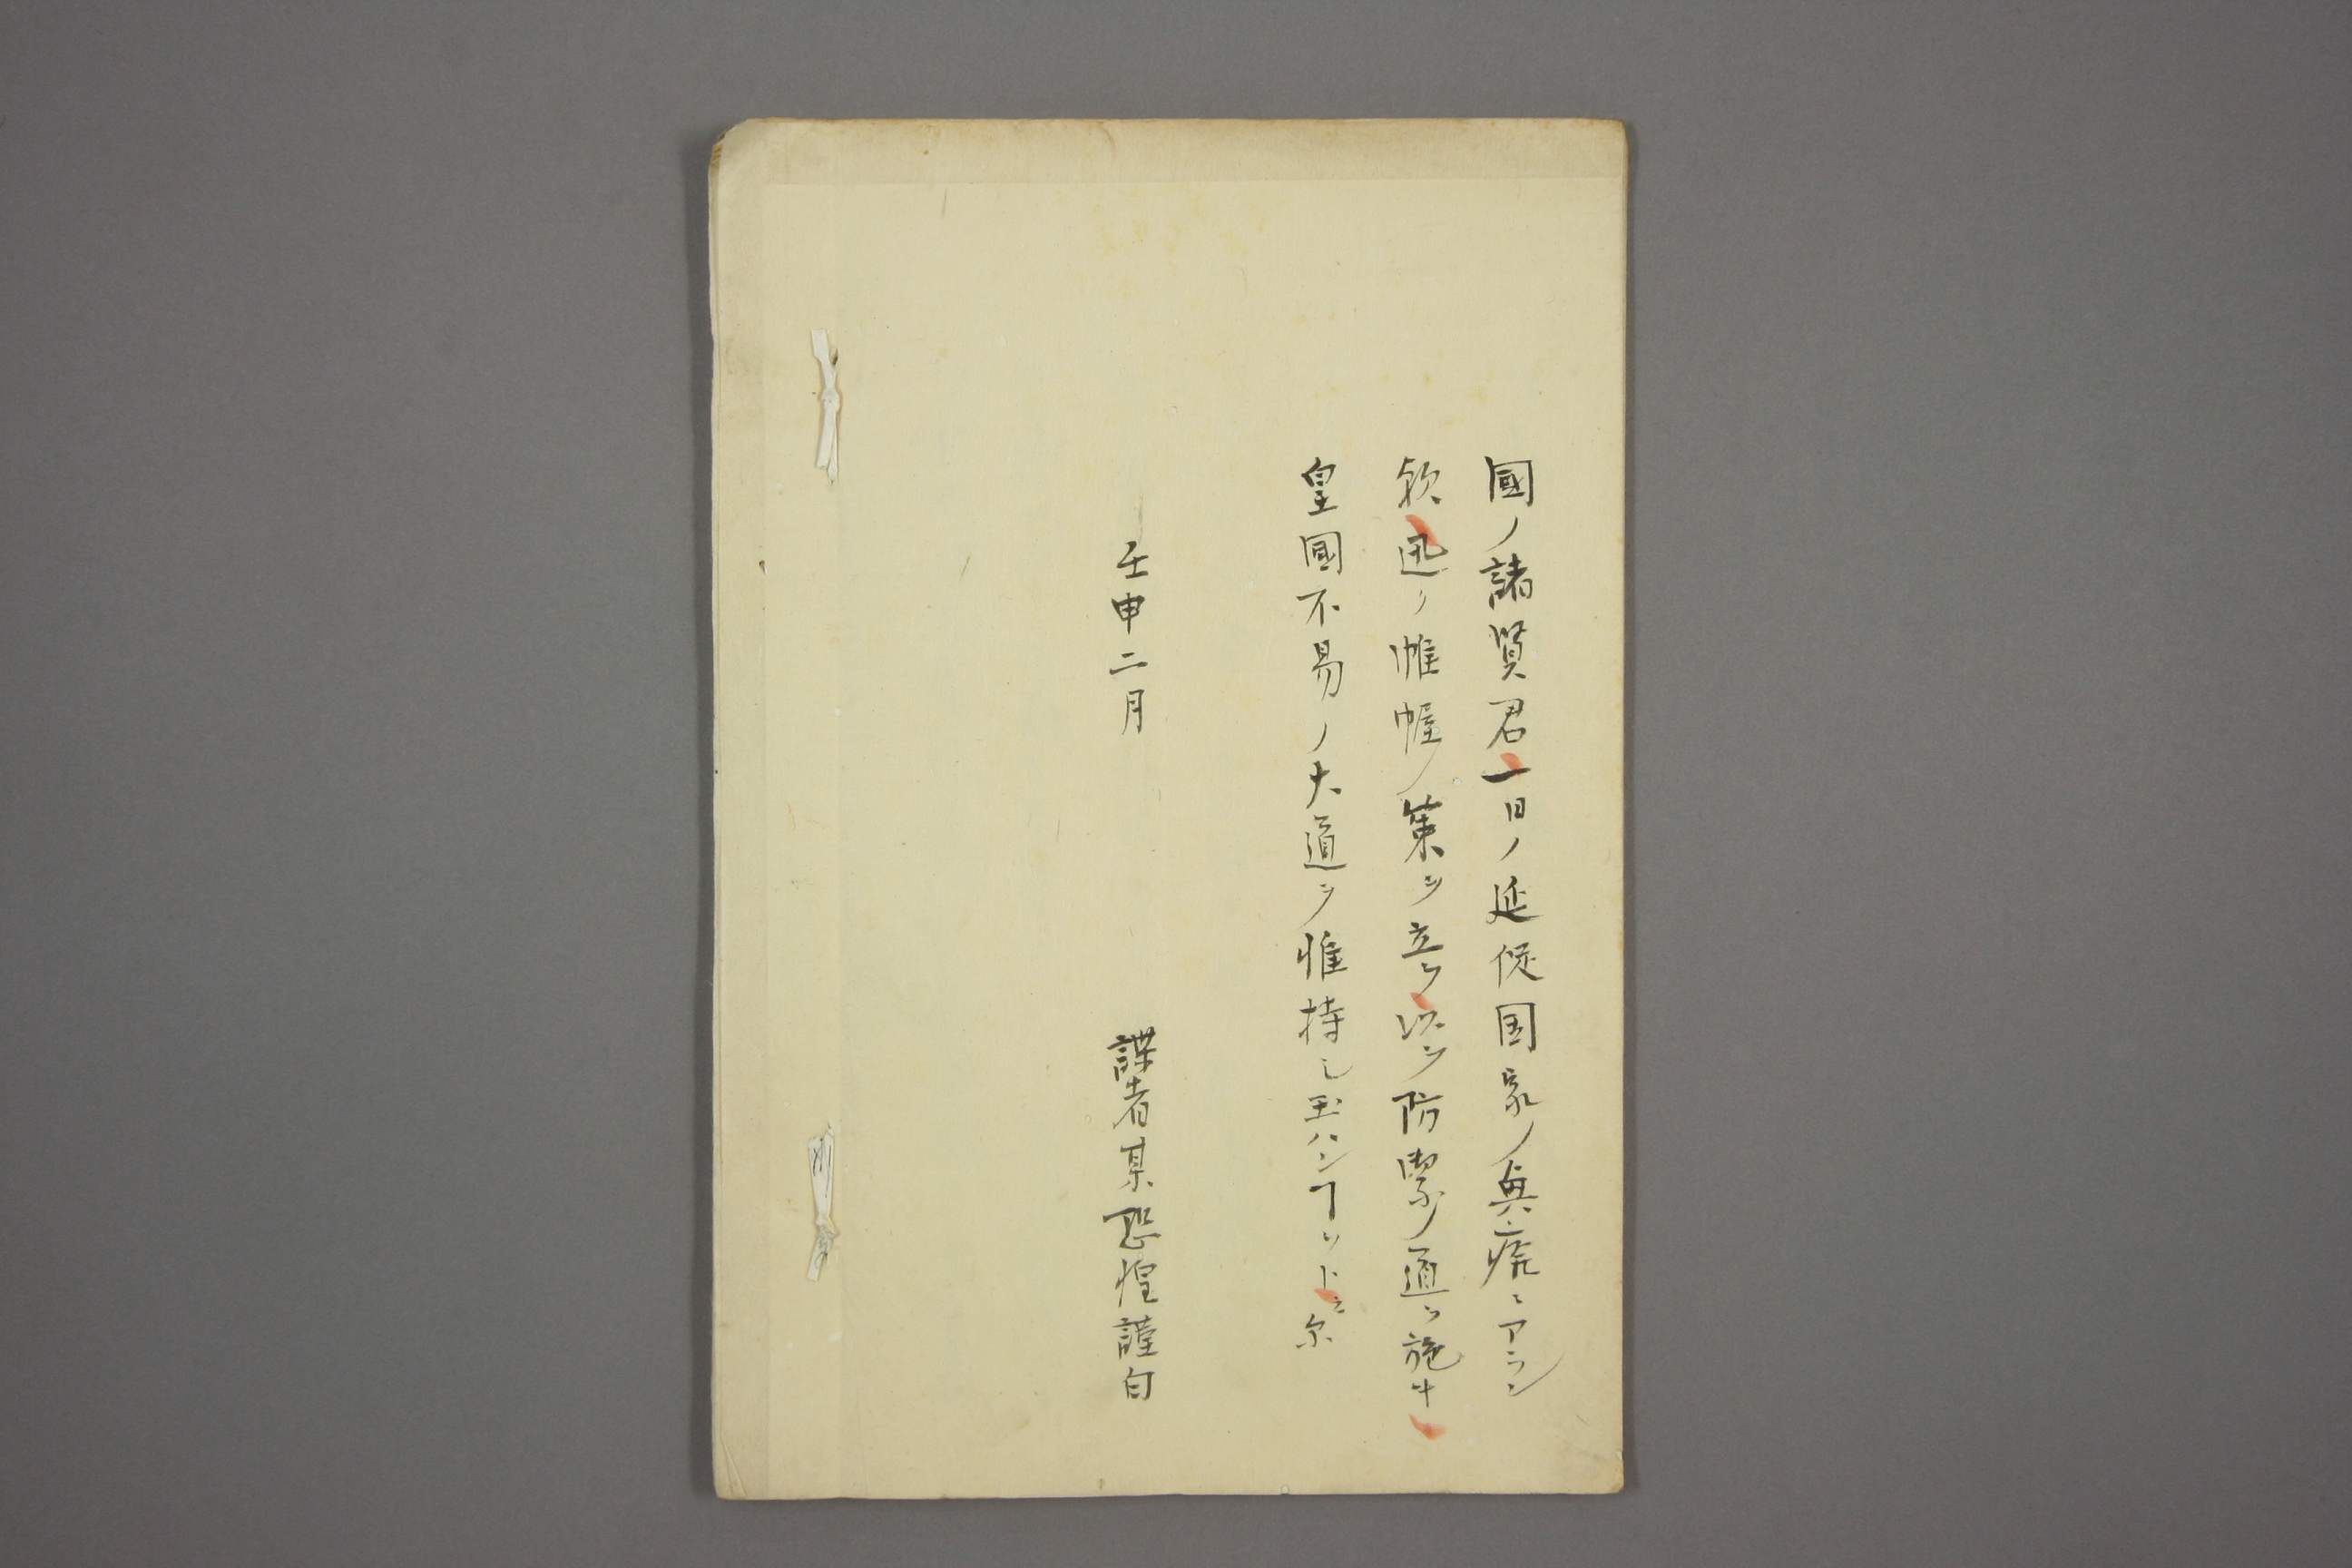 國ノ諸賢君一日ノ延促国家ノ興癈ニアラン
欤迅ク帷幄ノ策ヲ立テ以テ防禦ノ道ヲ施サレ
皇國不易ノ大道ヲ惟持シ玉ハンヿヲト云尓
壬申二月
諜者某恐惶謹白